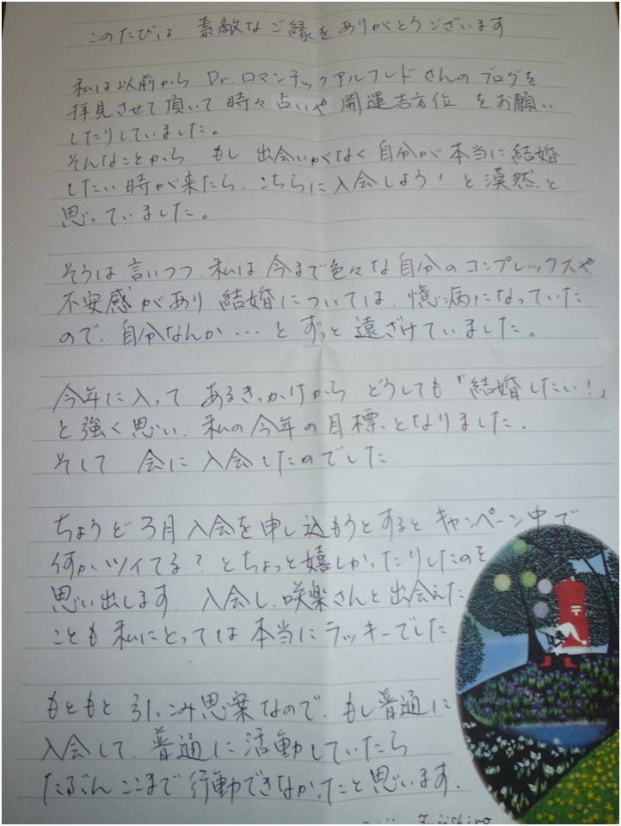 このたびは 素敵なご縁をありがとうございます
私は以前から Dr.ロマンチックアルフレドさんのブログを
拝見させて頂いて 時々占いや 開運吉方位 をお願い
したりしていました。
そんなことから、もし 出会いがなく自分が本当に結婚
したい時が来たら、こちらに入会しよう！と漠然と
思っていました。
そうは言いつつ、私は今まで色々な自分のコンプレックスや
不安感があり、結婚については、憶病になっていた
ので、自分なんか…と ずっと遠ざけていました。
今年に入って あるきっかけから どうしても「結婚したい！」
と強く思い、私の今年の目標となりました。
そして 会に入会したのでした。
ちょうど3月入会を申し込もうとすると キャンペーン中で
何かツイてる？とちょっと嬉しかったりしたのを
思い出します。入会し、咲楽さんと出会えた
ことも 私にとっては本当にラッキーでした。
もともと引っこみ思案なので、もし普通に
入会して、普通に活動していたら
たぶん ここまで行動できなかったと思います。
〒